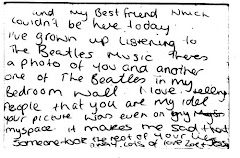 and my best friend which
couldn't be here today
I've grown up listening to
The Beatles music theres
a photo of you and another
one of The Beatles in my
bedroom wall I love telling
people that you are my idol
your picture was even on my
myspace it makes me sad that
someone took the rest of your life
lots of love